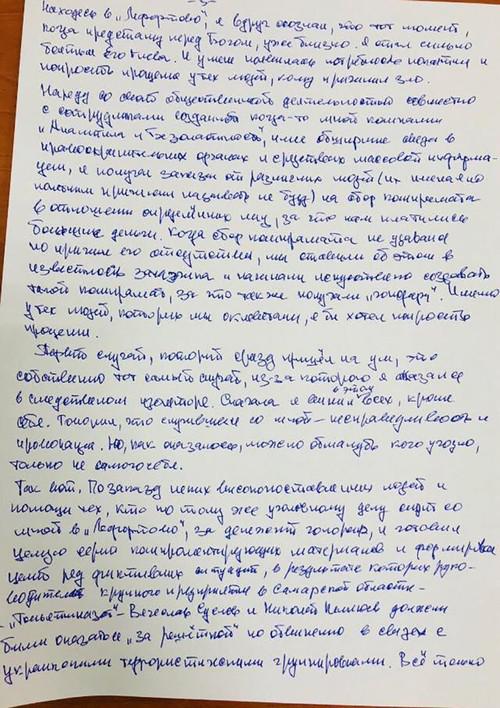 Находясь в „Лефортово“, я вдруг осознал, что тот момент,
когда предстану перед Богом, уже близко. Я стал сильно
бояться его гнева. И у меня появилась потребность покаяться и
попросить прощения у тех людей, кому причинил зло.
Наряду со своей общественной деятельностью совместно
с сотрудниками созданной когда-то мной компании
„Аналитика и Безопасность“, имея обширные связи в
правоохранительных органах и средствах массовой информа-
ции, я получал заказы от различных людей (их имена я по
понятным причинам называть не буду) на сбор компромата
в отношении определённых лиц, за что нам платились
большие деньги. Когда сбор компромата не удавался
по причине его отсутствия, мы ставили об этом в
известность заказчика и начинали искусственно создавать
такой компромат, за что также получали „гонорары“. Именно
у тех людей, которых мы оклеветали, я бы хотел попросить
прощения.
Первый случай, который сразу пришёл на ум, это
собственно тот самый случай, из-за которого я оказался
в следственном изоляторе. Сначала я винил в этом всех, кроме
себя. Говорил, что случившееся со мной – несправедливость и
провокация. Но, как оказалось, можно обмануть кого угодно,
только не самого себя.
Так вот. По заказу неких высокопоставленных людей и
помощи тех, кто по тому же уголовному делу сидит со
мной в „Лефортово“, за денежный гонорар, я готовил
целую серию компрометирующих материалов и формировал
целый ряд фиктивных ситуаций, в результате которых руко-
водители крупного предприятия в Самарской области –
– „Тольяттиазот“ – Вячеслав Суслов и Николай Неплюев должны
были оказаться „за решёткой“ по обвинению в связях с
украинскими террористическими группировками. Всё только